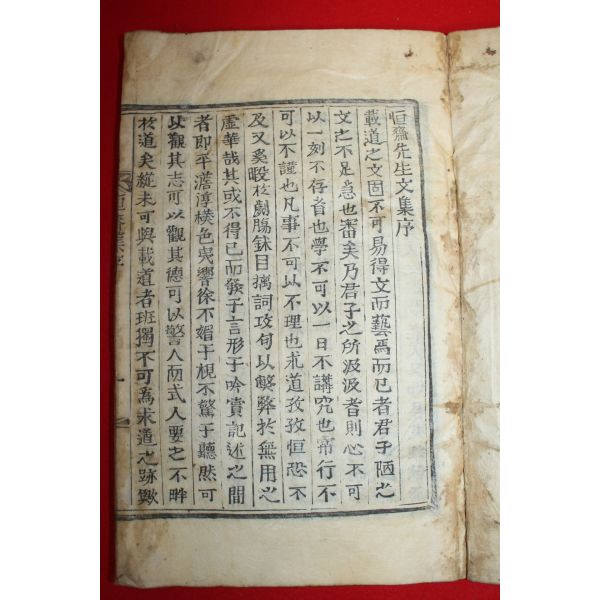 恒齋先生文集序
載道之文固不可易得文而藝焉而已者君子陋之
文之不足急也審矣乃君子之所汲汲者則心不可
以一刻不存省也學不可以一日不講究也常行不
可以不謹也凡事不可以不理也求道孜孜恒恐不
及又奚暇於劌膓鉥目摛詞攻句以斃弊於無用之
虛華哉其或不得已而發于言形于吟賣記述之間
者即平澹淳樸色夷響徐不媚于梘不驚于聽然可
以觀其志可以觀其德可以警人而式人要之不畔
於道矣縱未可與載道者班獨不可爲求道之跡歟
恒齋集序